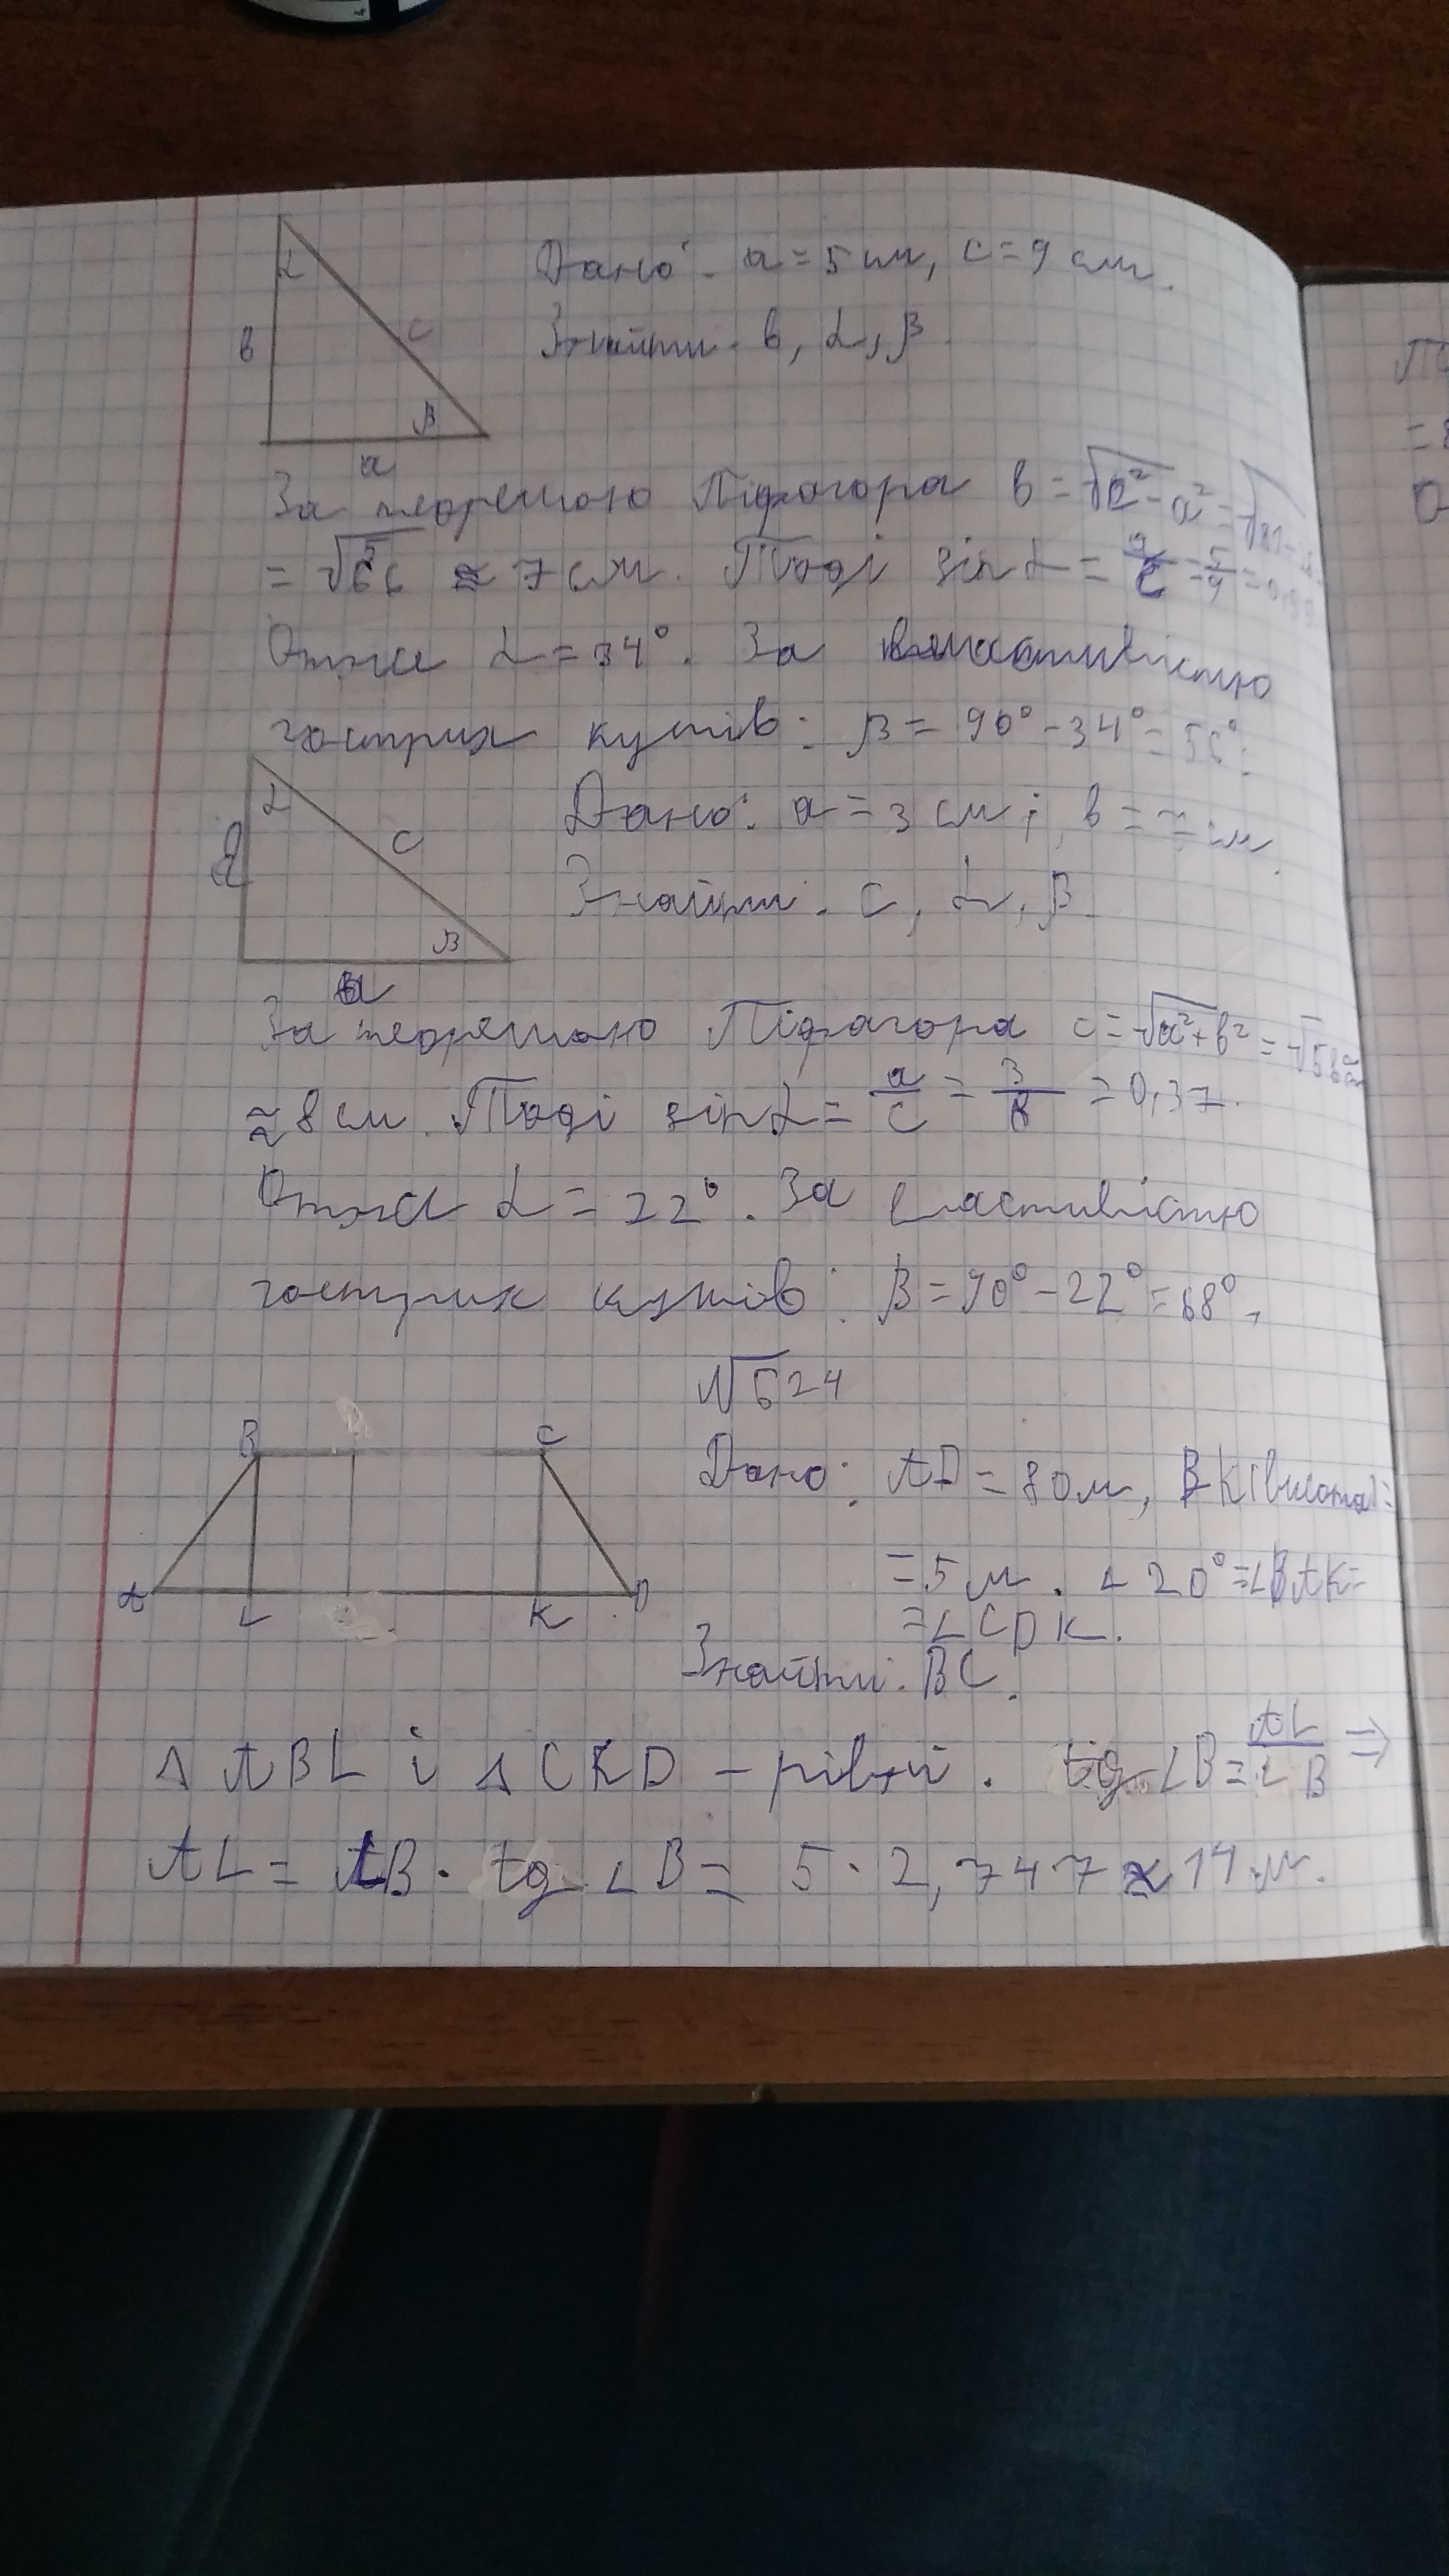 α
в
c
β
a
Дано: a = 5 см, c = 9 см.
Знайти: в, α, β
За теоремою Піфагора в = √c² - a² = √81
= √56 ≈ 7 см. Тоді sin α = a/c = 5/9 =
Отже α = 34°. За властивістю
гострих кутів: β = 90° - 34° = 56°.
α
c
β
a
Дано: a = 3 см; в = 7 см.
Знайти: c, α, β.
За теоремою Піфагора c = √a² + в² = √58 ≈
≈ 8 см. Тоді sin α = a/c = 3/8 = 0,37.
Отже α = 22°. За властивістю
гострих кутів: β = 90° - 22° = 68°.
№624
B C
A L K D
Дано: AD = 80 м, BK (висота) =
= 5 м. ∠20° = ∠BAK =
= ∠CDK.
Знайти: BC.
Δ ABL і Δ CKD - рівні. tg ∠B = AL/LB ⇒
AL = LB · tg ∠B = 5 · 2,747 ≈ 14 м.